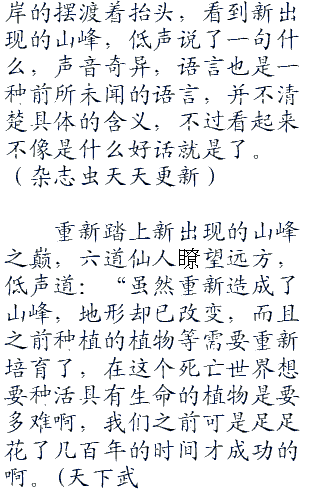 岸的摆渡着抬头，看到新出
现的山峰，低声说了一句什
么，声音奇异，语言也是一
种前所未闻的语言，并不清
楚具体的含义，不过看起来
不像是什么好话就是了。
（杂志虫天天更新）
重新踏上新出现的山峰
之巅，六道仙人瞭望远方，
低声道：“虽然重新造成了
山峰，地形却已改变，而且
之前种植的植物等需要重新
培育了，在这个死亡世界想
要种活具有生命的植物是要
多难啊，我们之前可是足足
花了几百年的时间才成功的
啊。(天下武